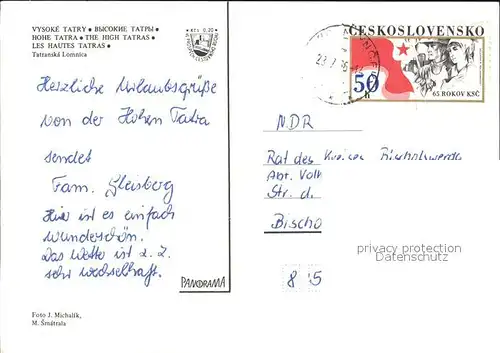 VYSOKÉ TATRY • ВЫСОКИЕ ТАТРЫ •
HOHE TATRA • THE HIGH TATRAS •
LES HAUTES TATRAS •
Tatranská Lomnica
Kčs 0,30
Herzliche Urlaubsgrüße
von der Hohen Tatra
sendet
Fam. Gleisberg
Hier ist es einfach
wunderschön.
Das Wetter ist z. Z.
sehr wechselhaft.
PANORAMA
Foto J. Michalík,
M. Šmátrala
ČESKOSLOVENSKO
50
h
65 ROKOV KSČ
NDR
Rat des Kreises Bischofswerda
Abt. Volk
Str. d.
Bischo
privacy protection
Datenschutz
8 5